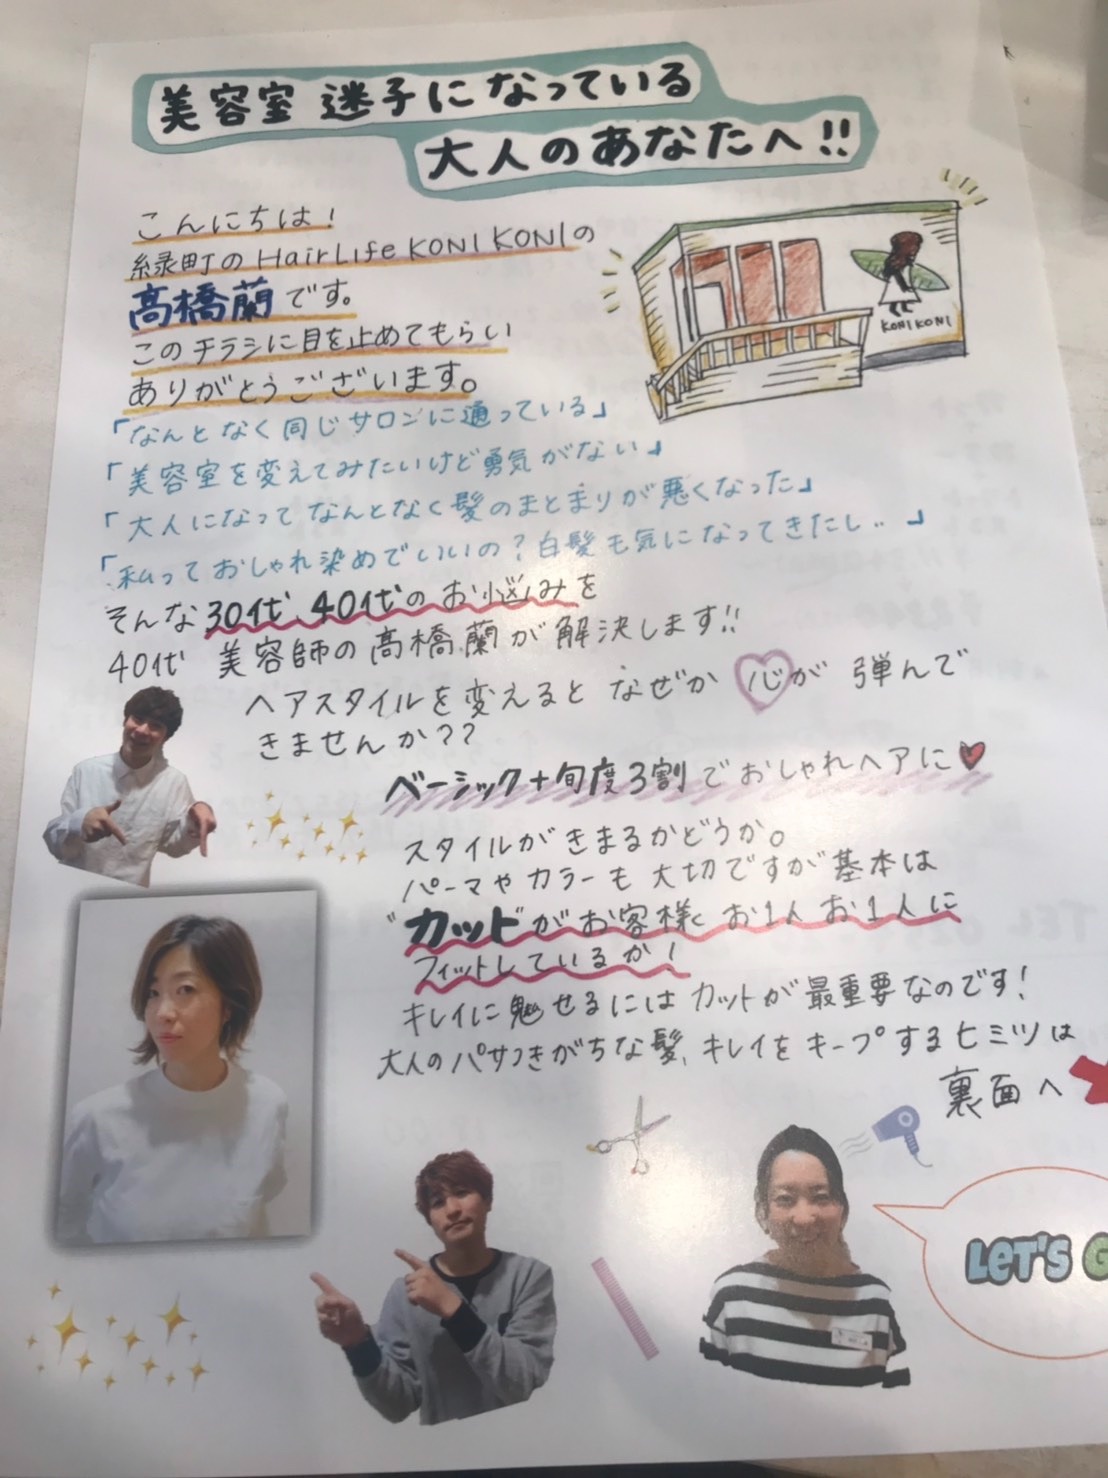 美容室 迷子になっている
大人のあなたへ!!
こんにちは!
緑町のHairLife KONI KONIの
髙橋蘭です。
このチラシに目を止めてもらい
ありがとうございます。
KONI KONI
「なんとなく同じサロンに通っている」
「美容室を変えてみたいけど勇気がない」
「大人になってなんとなく髪のまとまりが悪くなった」
「私っておしゃれ染めでいいの?白髪も気になってきたし..」
そんな30代、40代のお悩みを
40代 美容師の髙橋蘭が解決します!!
ヘアスタイルを変えるとなぜか心が弾んで
きませんか??
ベーシック+旬度3割でおしゃれヘアに
スタイルがきまるかどうか。
パーマやカラーも大切ですが基本は
"カット"がお客様お1人お1人に
フィットしているか!
キレイに魅せるにはカットが最重要なのです!
大人のパサつきがちな髪、キレイをキープするヒミツは
裏面へ
LET'S G